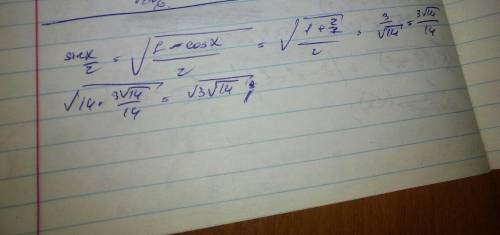 sin x/2 = √((1 - cosx)/2) = √((1 + 2/7)/2) = 3/√14 = 3√14/14
√(14 · 3√14/14) = √(3√14)